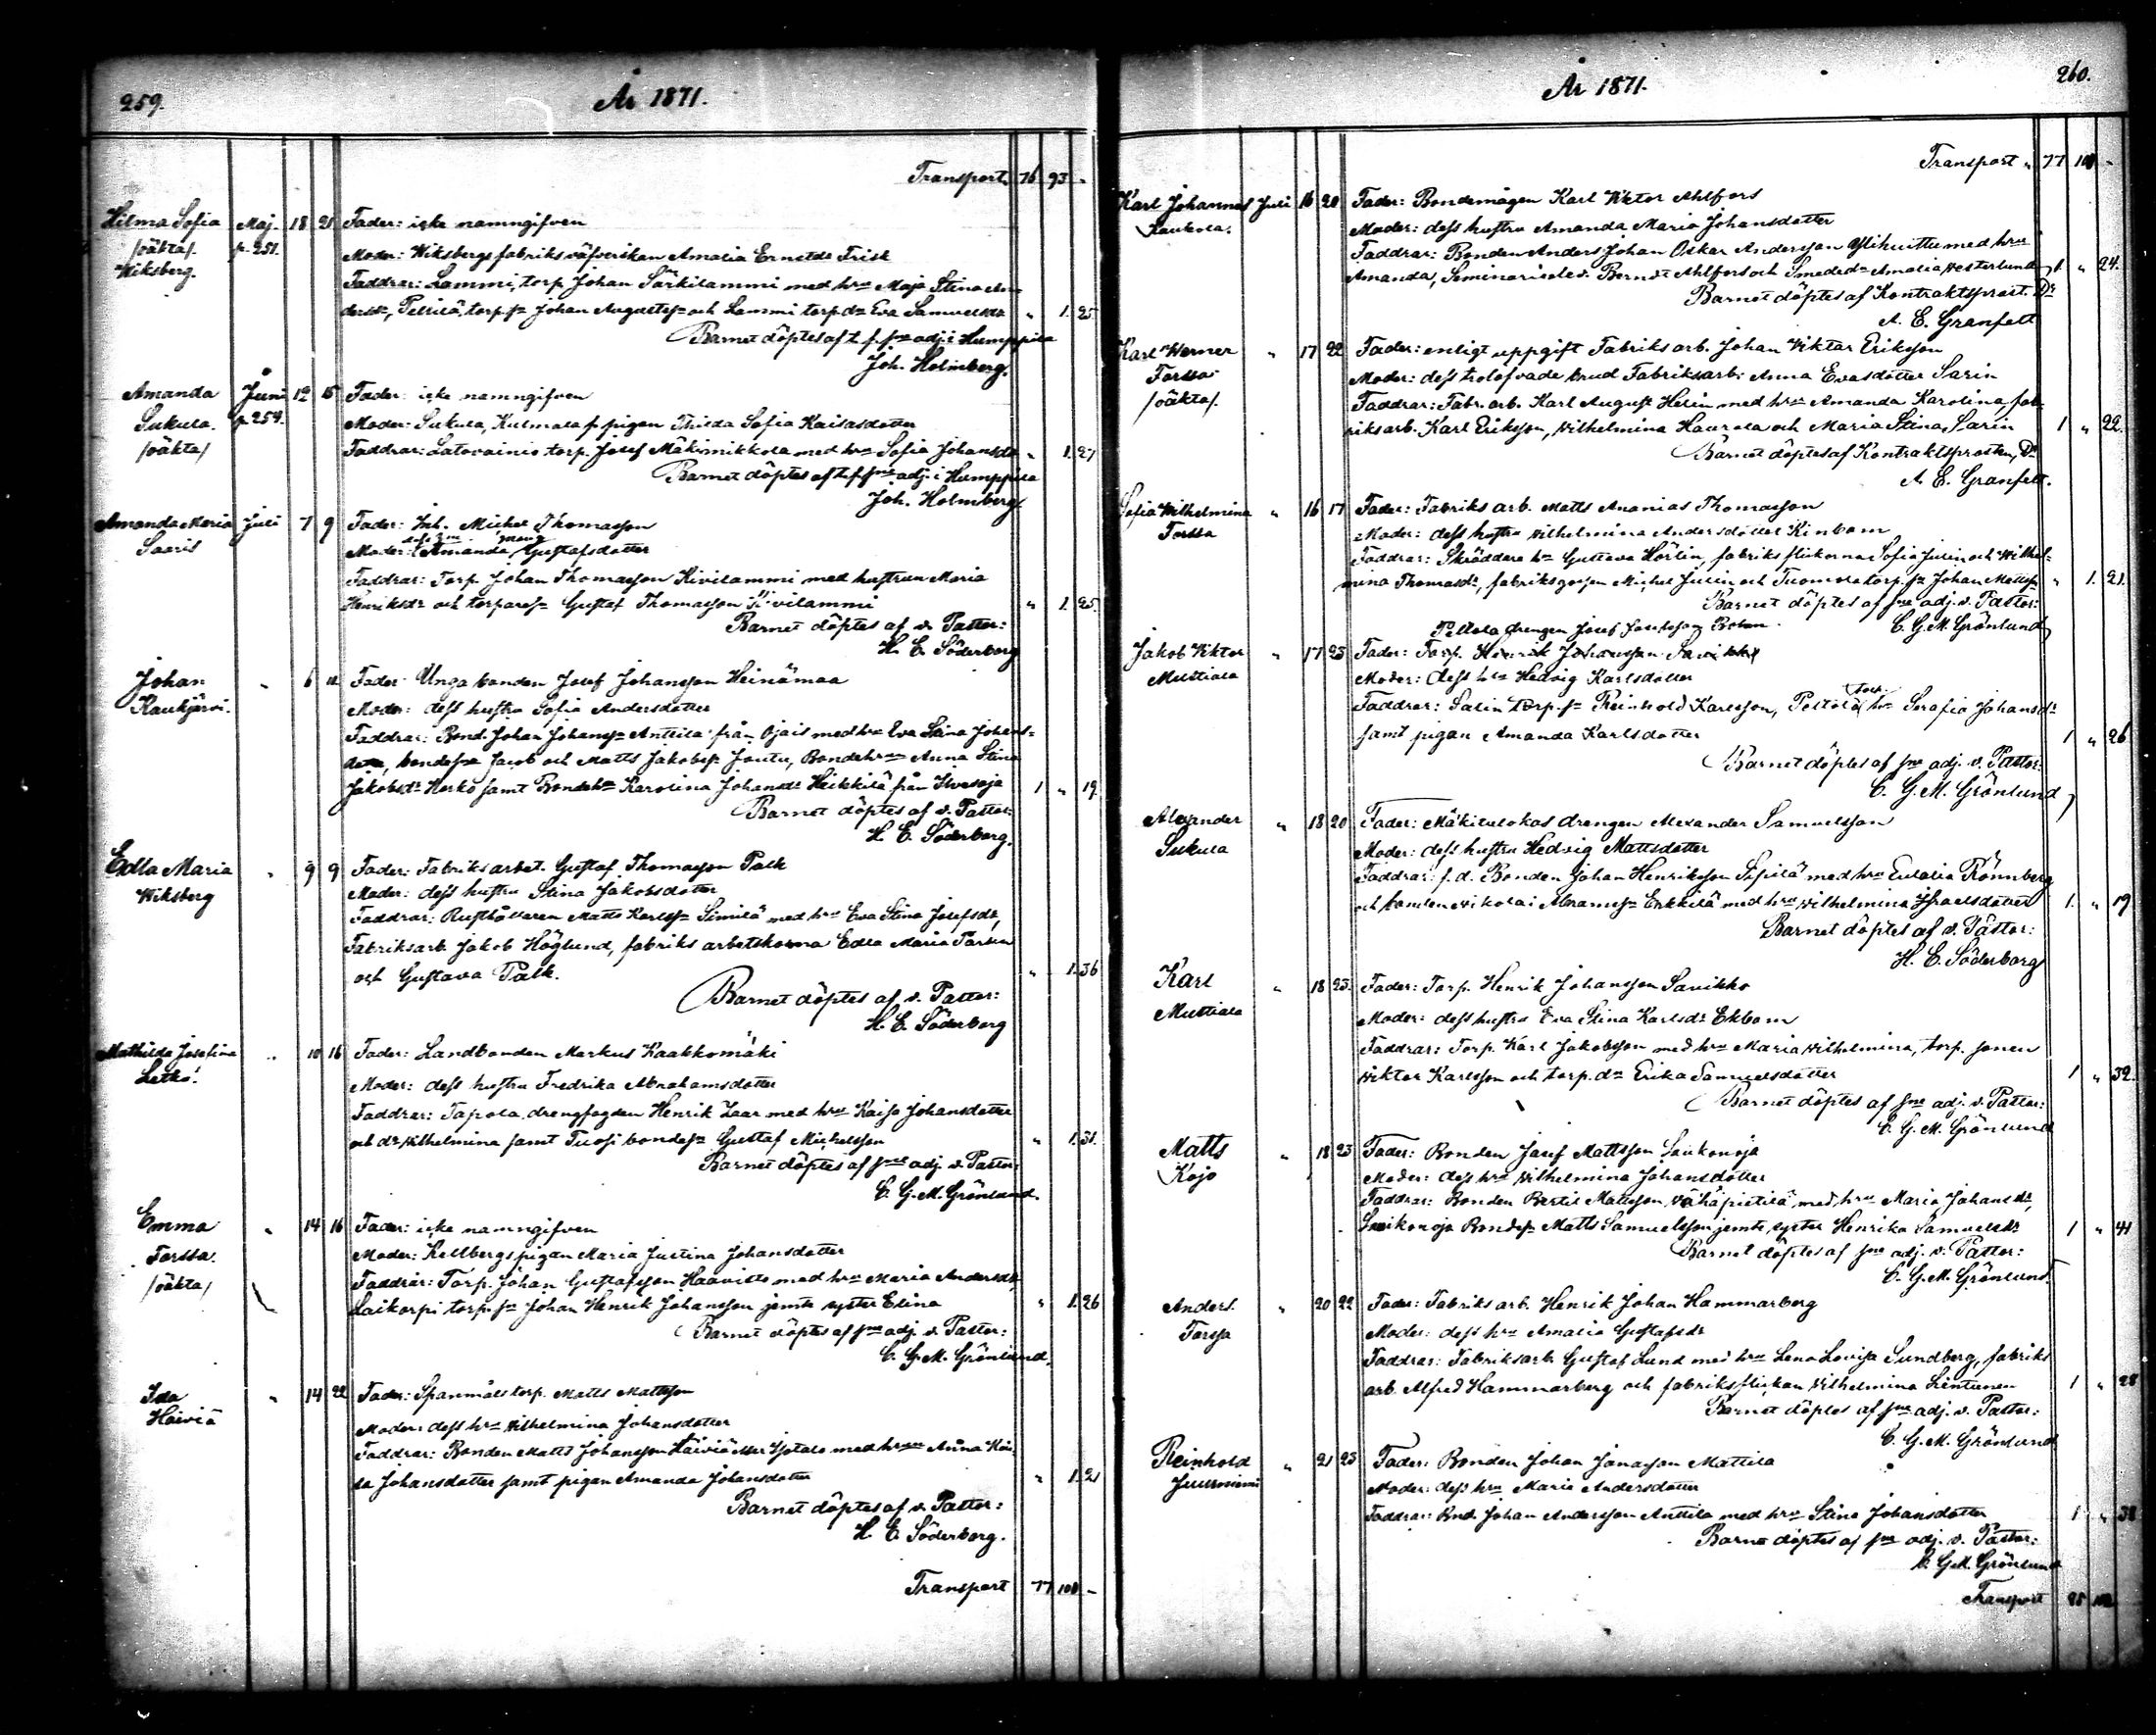 259. År 1871.
Transport 76 93 -
Hilma Sofia Maj. 18 21 Fader: icke namngifven
/oäkta/. p. 251. Moder: Wiksbergs fabriks väfverskan Amalia Ernstdr Frisk
Wiksberg. Faddrar: Lammi, torp. Johan Särkilammi med hru Maja Stina An-
dersdr, torp.sn Johan Augustssn och Lammi torp.dr Eva Samuelsdr " 1. 25
Barnet döptes af t. f. sne adj. i Humppila
Joh. Holmberg.
Amanda Juni 12 15 Fader: icke namngifven
Sukula. p. 254. Moder: Sukula, Kulmala pigan Thilda Sofia Kaisasdotter
/oäkta/ Faddrar: Latovainio torp. Josef Mäkimikkola med hru Sofia Johansdr " 1. 27
Barnet döptes af t. f. sne adj. i Humppila
Joh. Holmberg.
Amanda Maria Juli 7 9 Fader: Inh. Michel Thomasson
Saaris Moder: Amanda Gustafsdotter
Faddrar: Torp. Johan Thomasson Kivilammi med hustrun Maria
Henriksdr och torparesn Gustaf Thomasson Kivilammi " 1. 25.
Barnet döptes af v. Pastor:
H. E. Söderborg
Johan " 6 12 Fader: Unga bonden Josef Johansson Heinämaa
Kaukjärvi. Moder: dess hustru Sofia Andersdotter
Faddrar: Bond. Johan Johanssn Anttila från Ojais med hru Eva Stina Johans-
dotter, bondesne Jacob och Matts Jakobssn Joutu, Bondehrun Anna Stina
Jakobsdr Horko samt Bondehn Karolina Johansdr Heikkilä från Ilvesoja 1 " 19.
Barnet döptes af v. Pastor:
H. E. Söderborg.
Edla Maria " 9 9 Fader: Fabriksarbet. Gustaf Thomasson Palk
Wiksberg Moder: dess hustru Stina Jakobsdotter
Faddrar: Rusthållaren Matts Karlssn Simila med hru Eva Stina Josefsdr,
Fabriksarb. Jakob Höglund, fabriks arbetskorna Edla Maria
och Gustava Palk. " 1. 36
Barnet döptes af v. Pastor:
H. E. Söderborg
Mathilda Josefina " 10 16 Fader: Landbonden Markus Kaakkomäki
Letko. Moder: dess hustru Fredrika Abrahamsdotter
Faddrar: Tapola drengfogden Henrik Zaar med hru Kaisa Johansdotter
och dr Wilhelmina samt bondesn Gustaf Michelsson " 1. 31.
Barnet döptes af sne adj. v. Pastor:
C. G. M. Grönlund.
Emma " 14 16 Fader: icke namngifven
Forssa. Moder: Kellbergs pigan Maria Justina Johansdotter
/oäkta/ Faddrar: Torp. Johan Gustafsson Haavisto med hru Maria Andersdr,
Laikorpi torp.sn Johan Henrik Johansson jemte syster Elina " 1. 26
Barnet döptes af sne adj. v. Pastor:
C. G. M. Grönlund.
Ida " 14 22 Fader: Spanmåls torp. Matts Mattsson
Häiviä Moder: dess hru Wilhelmina Johansdotter
Faddrar: Bonden Matts Johansson Häiviä eller Isotalo med hrun Anna Kai-
sa Johansdotter samt pigan Amanda Johansdotter " 1. 21
Barnet döptes af v. Pastor:
H. E. Söderborg.
Transport 77 100 -
År 1871. 260.
Transport " 77 100 -
Karl Johannes Juli 16 20 Fader: Bondemågen Karl Wiktor Ahlfors
Kaukola. Moder: dess hustru Amanda Maria Johansdotter
Faddrar: Bonden Anders Johan Oskar Andersson Ylihuittu med hru
Amanda, Seminariielev. Berndt Ahlfors och Smedsdr Amalia Westerlund 1. " 24.
Barnet döptes af Kontraktsprost. Dr
A. E. Granfelt
Karl Werner " 17 22 Fader: enligt uppgift Fabriksarb. Johan Wiktor Eriksson
Forssa Moder: dess trolofvade brud Fabriksarb. Anna Evasdotter Sarin
/oäkta/. Faddrar: Fabr. arb. Karl August Helin med hru Amanda Karolina, fab-
riksarb. Karl Eriksson, Wilhelmina Haurala och Maria Stina Sarin 1 " 22.
Barnet döptes af Kontraktsprosten, Dr
A. E. Granfelt.
Sofia Wilhelmina " 16 17 Fader: Fabriks arb. Matts Ananias Thomasson
Forssa Moder: dess hustru Wilhelmina Andersdotter Kinbom
Faddrar: Skräddare hn Gustava Hörlin, fabriks flickorna Sofia Julin och Wilhel-
mina Thomasdr, fabriksgossen Michel Julin och Tuomola torp.sn Johan Mattssn " 1. 21.
Barnet döptes af sne adj. v. Pastor:
C. G. M. Grönlund
Peltola drengen Josef Josefsson
Jakob Wiktor " 17 23 Fader: Torp. Henrik Johansson Savikko
Mustiala Moder: dess hru Hedvig Karlsdotter
Faddrar: Salin torp.sn Reinhold Karlsson, Peltola torp. hn Serafia Johansdr
samt pigan Amanda Karlsdotter 1 " 26
Barnet döptes af sne adj. v. Pastor:
C. G. M. Grönlund
Alexander " 18 20 Fader: Mäkitulokas drengen Alexander Samuelsson
Sukula Moder: dess hustru Hedvig Mattsdotter
Faddrar: f. d. Bonden Johan Henriksson Sipilä med hru Eulalia Rönnberg
och bonden Nikolai Abramssn Erkkilä med hru Wilhelmina Israelsdotter 1. " 19
Barnet döptes af v. Pastor:
H. E. Söderborg
Karl " 18 23. Fader: Torp. Henrik Johansson Savikko
Mustiala Moder: dess hustru Eva Stina Karlsdr Ekbom
Faddrar: Torp. Karl Jakobsson med hru Maria Wilhelmina, torp. sonen
Wiktor Karlsson och torp.dr Erika Samuelsdotter 1 " 32.
Barnet döptes af sne adj. v. Pastor:
C. G. M. Grönlund
Matts " 18 23 Fader: Bonden Josef Mattsson Saukonoja
Kojo Moder: dess hru Wilhelmina Johansdotter
Faddrar: Bonden Bertil Matsson Vähäpietilä med hru Maria Johansdr,
Saukonoja Bondesn Matts Samuelsson jemte syster Henrika Samuelsdr 1 " 41
Barnet döptes af sne adj. v. Pastor:
C. G. M. Grönlund.
Anders. " 20 22 Fader: Fabriks arb. Henrik Johan Hammarberg
Forssa Moder: dess hru Amalia Gustafsdr
Faddrar: Fabriksarb. Gustaf Lund med hru Lena Lovisa Sundberg, fabriks
arb. Alfred Hammarberg och fabriksflickan Wilhelmina Lintunen 1 " 28
Barnet döptes af sne adj. v. Pastor:
C. G. M. Grönlund
Reinhold " 21 23 Fader: Bonden Johan Jonasson Mattila
Moder: dess hru Maria Andersdotter
Faddrar: Bnd. Johan Andersson Anttila med hru Stina Johansdotter 1 " 38
Barnet döptes af sne adj. v. Pastor:
C. G. M. Grönlund
Transport 85